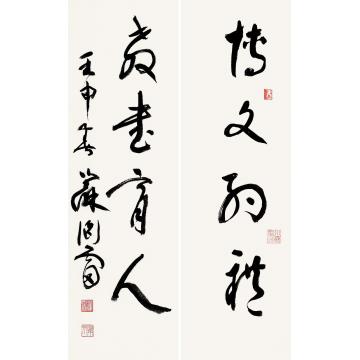 博文約禮
教書育人
壬申春